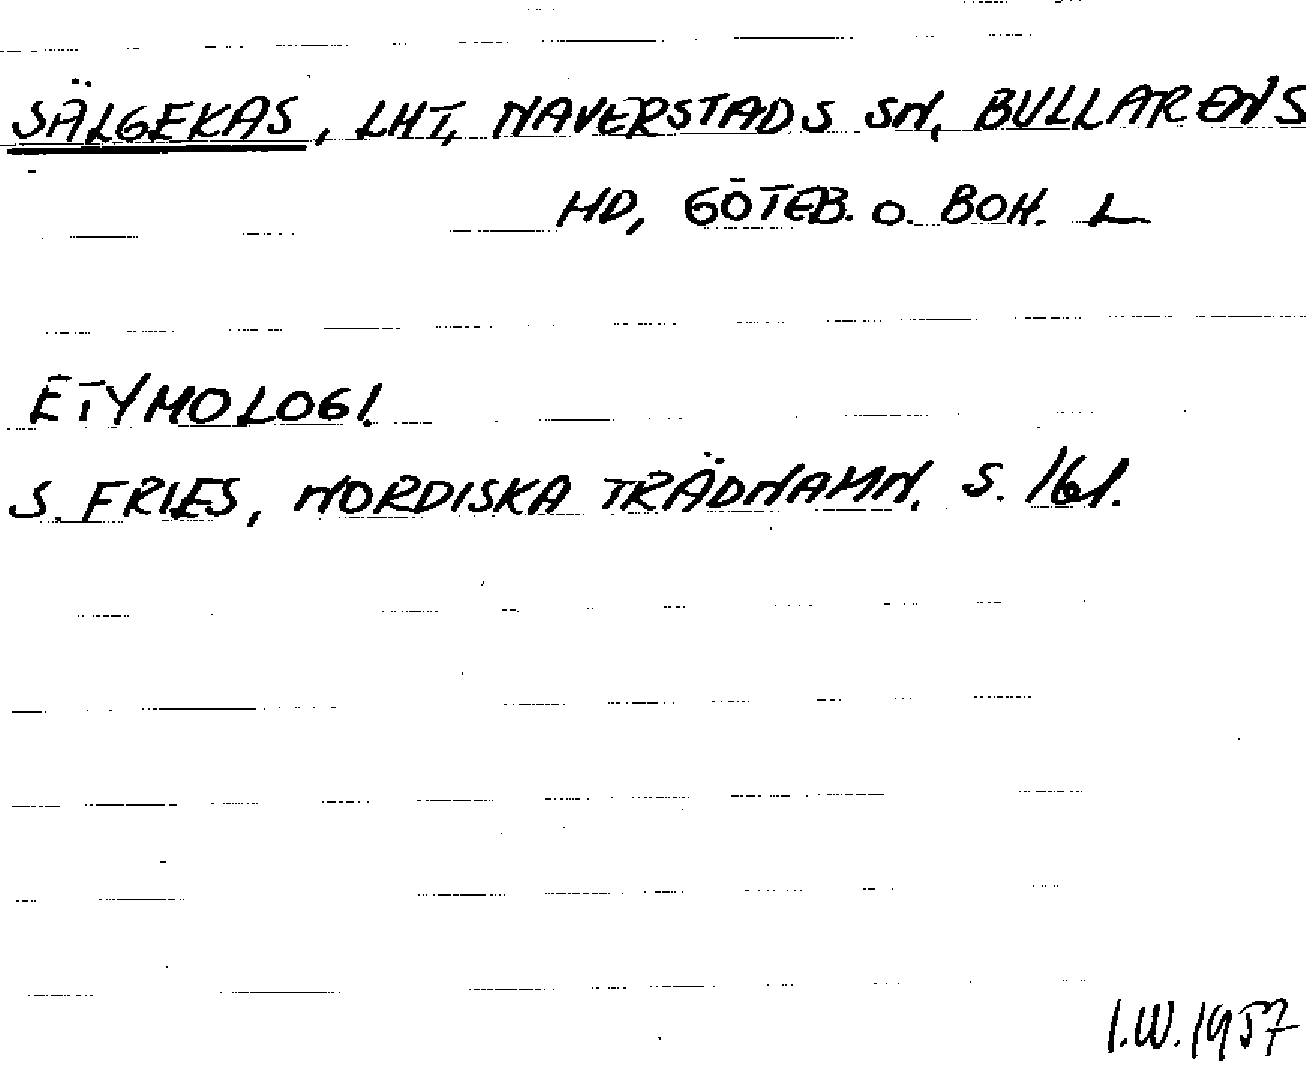 SÄLGEKAS, LHT, NAVERSTADS SN, BULLARENS
HD, GÖTEB. O. BOH. L
ETYMOLOGI.
S. FRIES, NORDISKA TRÄDNAMN. S. 161.
I.W. 1957